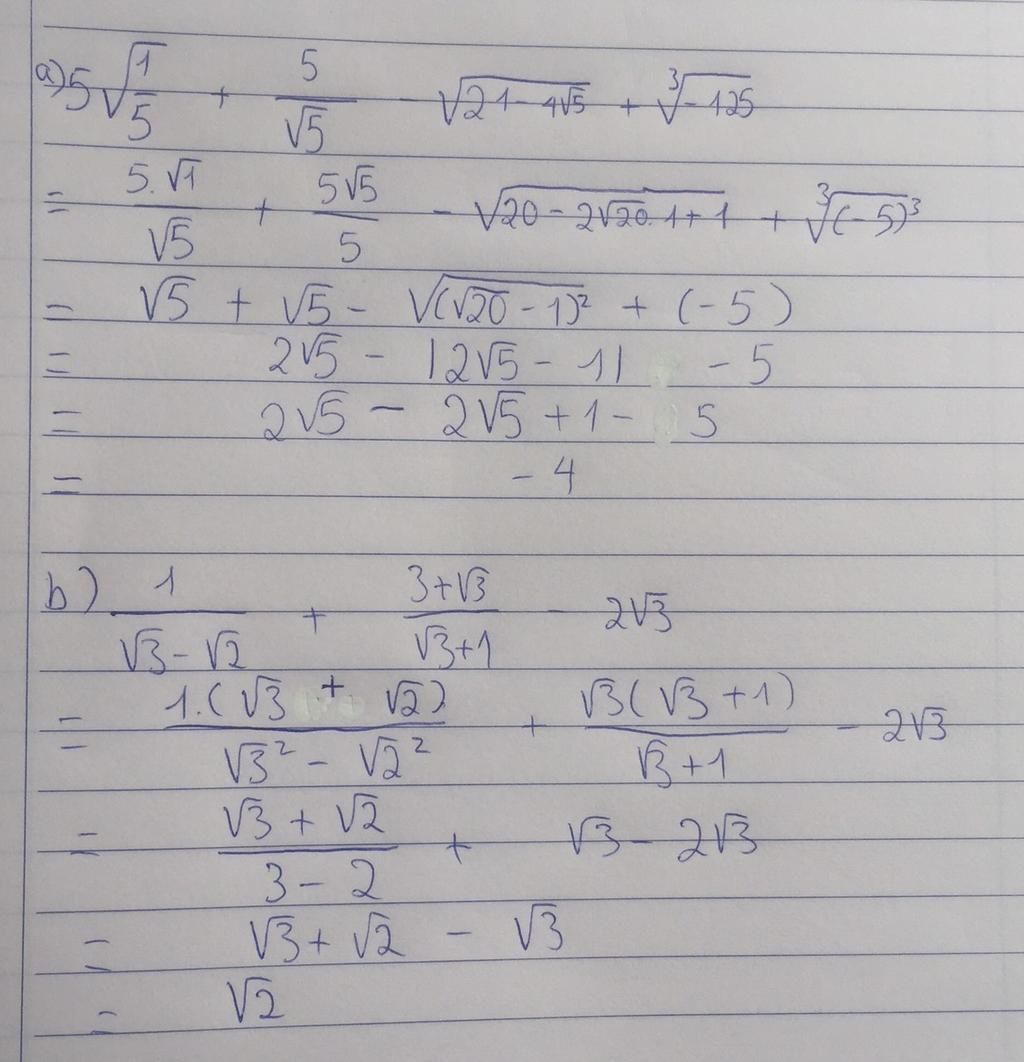 a) 5√(1/5) + 5/√5 - √(21 - 4√5) + ∛(-125)
= 5.√1/√5 + 5√5/5 - √(20 - 2√20.1 + 1) + ∛((-5)³)
= √5 + √5 - √((√20 - 1)²) + (-5)
= 2√5 - |2√5 - 1| - 5
= 2√5 - 2√5 + 1 - 5
= -4
b) 1/(√3 - √2) + (3+√3)/(√3+1) - 2√3
= 1.(√3 + √2)/(√3² - √2²) + √3(√3 + 1)/(√3 + 1) - 2√3
= (√3 + √2)/(3 - 2) + √3 - 2√3
= √3 + √2 - √3
= √2